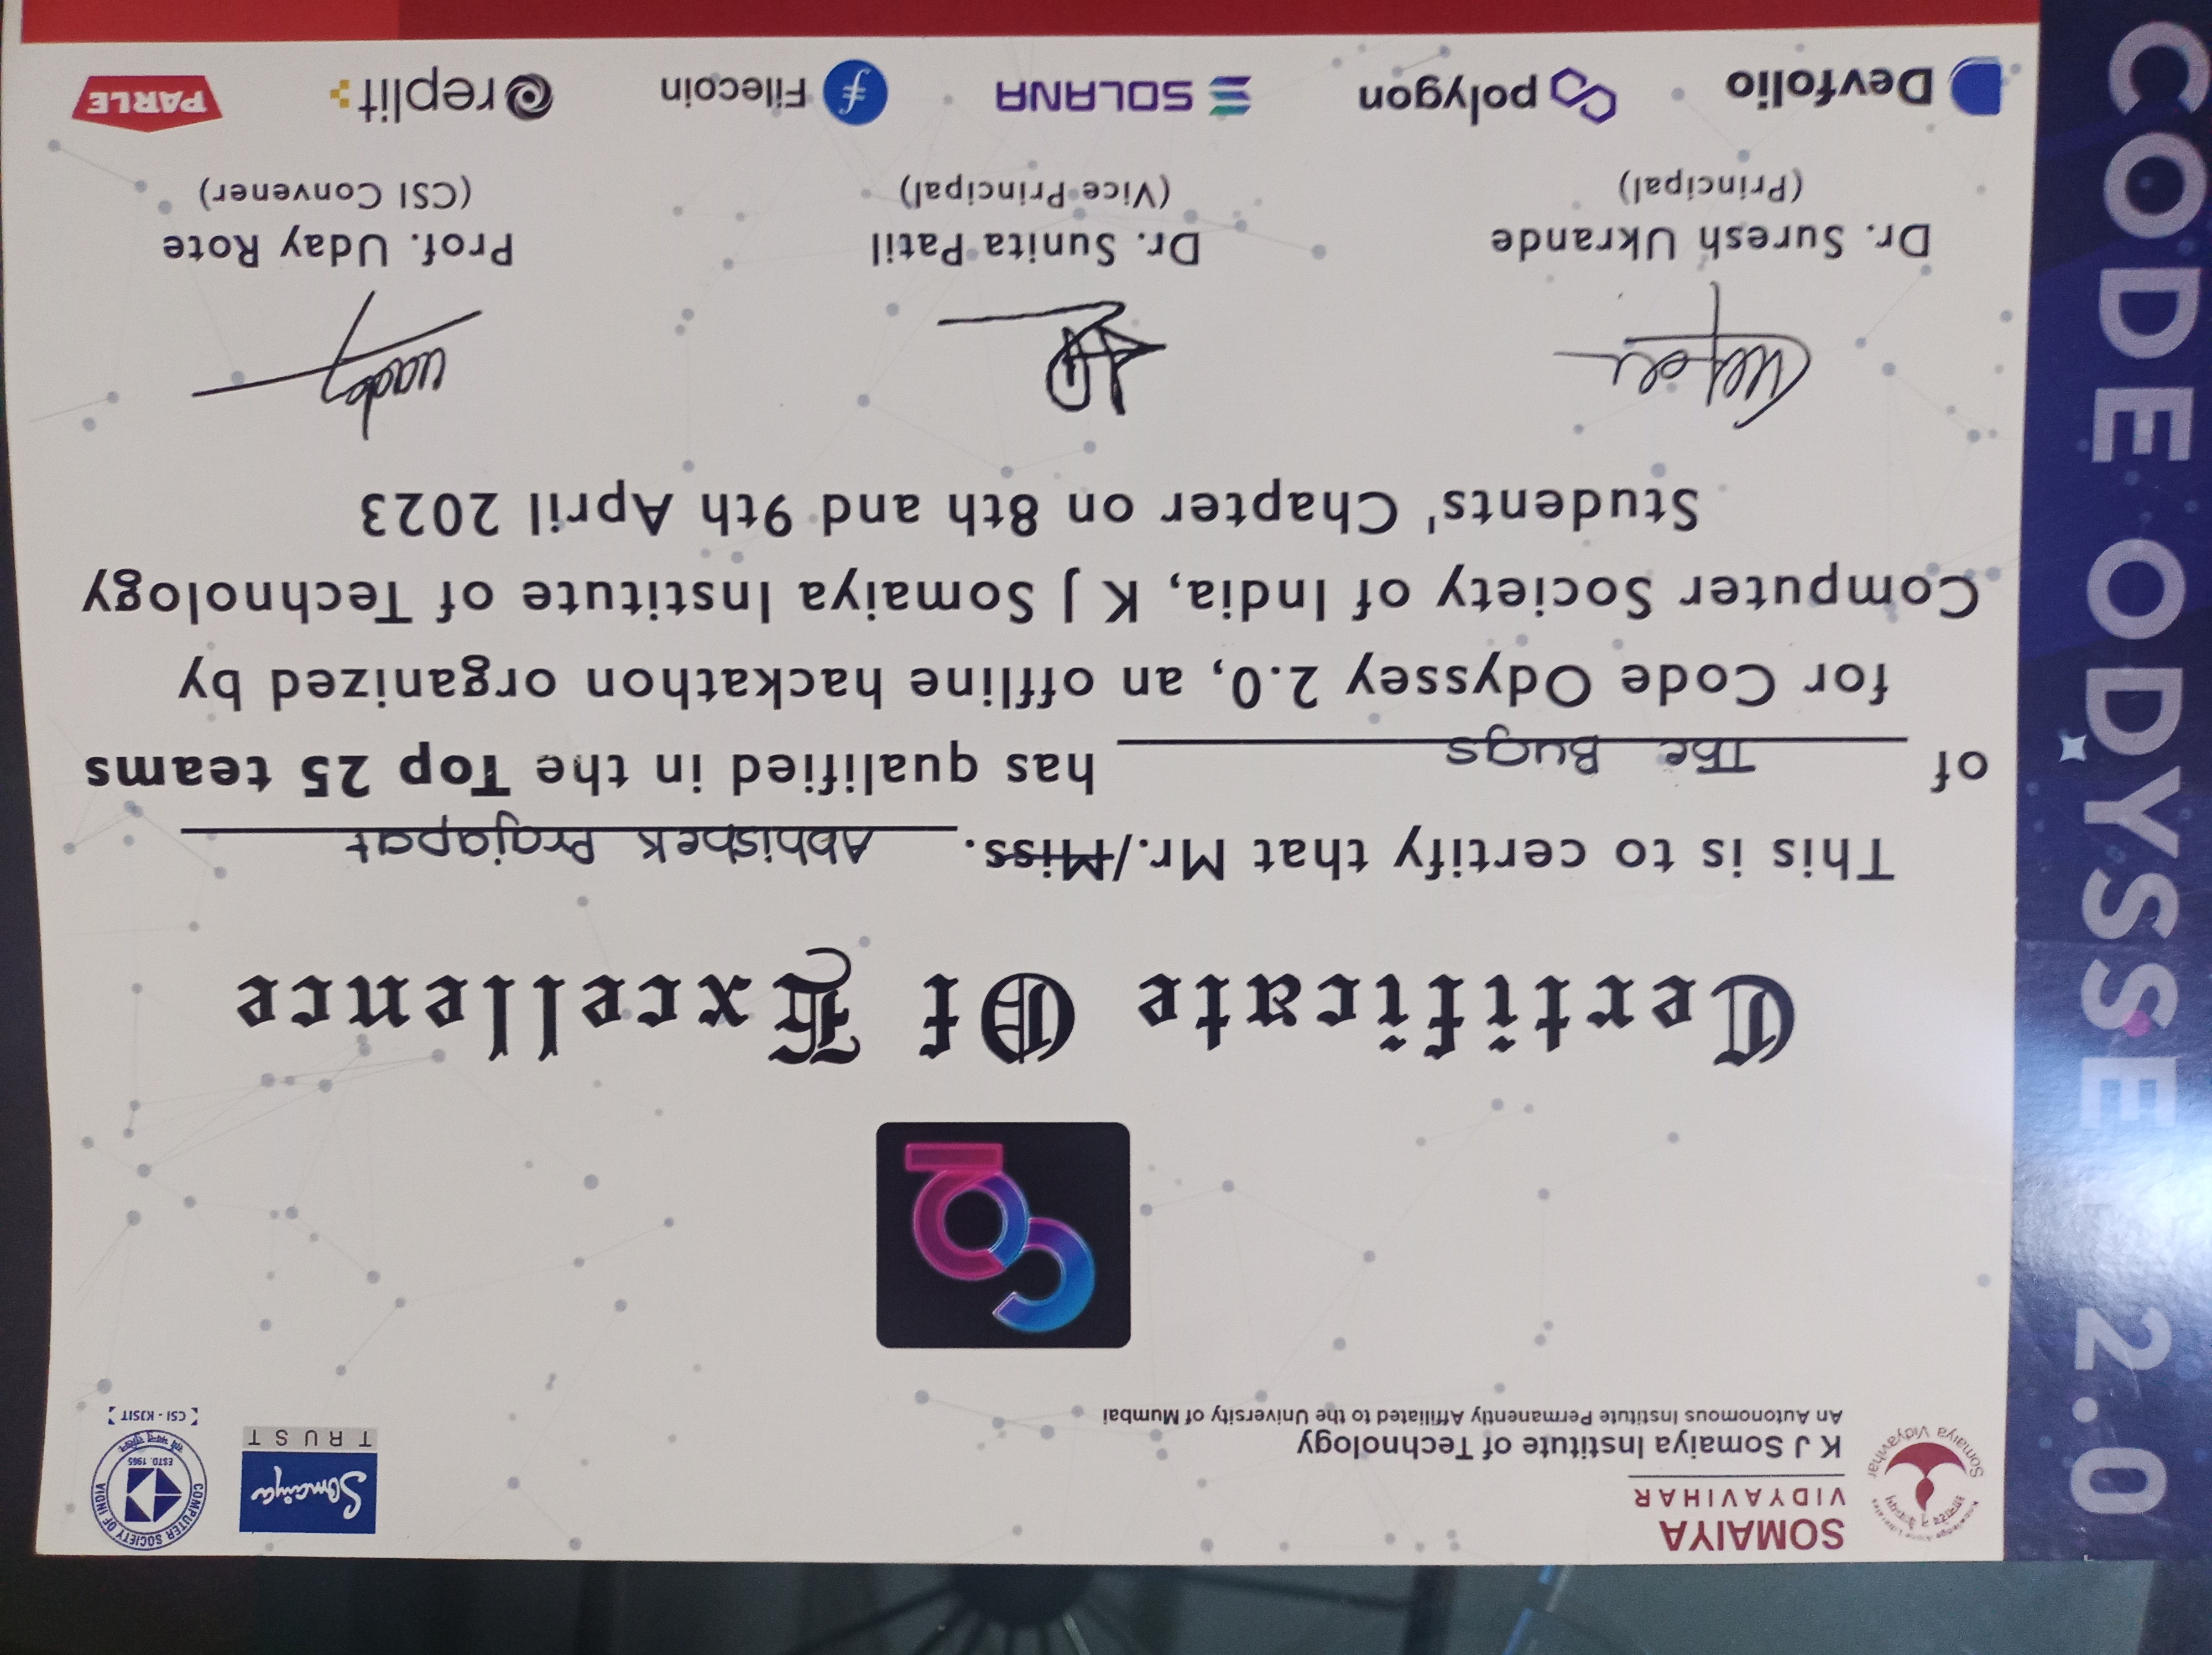 CODE ODYSSEY 2.0
SOMAIYA
VIDYAVIHAR
K J Somaiya Institute of Technology
An Autonomous Institute Permanently Affiliated to the University of Mumbai
Somaiya Vidyavihar
Somaiya
TRUST
COMPUTER SOCIETY OF INDIA
ESTD. 1965
CSI - KJSIT
Certificate Of Excellence
This is to certify that Mr./Miss. Abhishek Prajapat
of The Bugs has qualified in the Top 25 teams
for Code Odyssey 2.0, an offline hackathon organized by
Computer Society of India, K J Somaiya Institute of Technology
Students' Chapter on 8th and 9th April 2023
Dr. Suresh Ukrande
(Principal)
Dr. Sunita Patil
(Vice Principal)
Prof. Uday Rote
(CSI Convener)
Devfolio
polygon
SOLANA
Filecoin
replit
PARLE